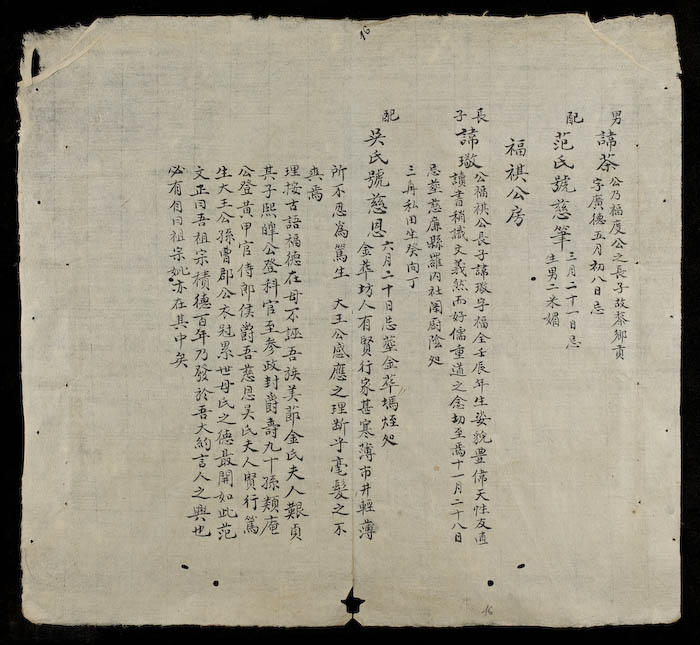 16
男
諱茶 公乃福度公之長子故黎鄉貢
字廣德五月初八日忌
配
范氏號慈筆 三月二十一日忌
生男二米媚
福祺公房
長子
諱璥 公福祺公長子諱璥字福全壬辰年生姿貌豊偉天性友直
讀書稍識文義然而好儒重道之念切至焉十一月二十八日
忌墓慈廉縣羅内社閣廚陰处
三舟私田生癸向丁
配
吳氏號慈恩 六月二十日忌塋金葬塢烴处
金葬坊人有賢行家甚寒薄市井輕薄
所不忍為篤生 大王公感應之理断乎毫髮之不
爽焉
理按古語福德在母不誣吾族美莭金氏夫人艱貞
其子熙皡公登科官至參政封爵壽九十孫類庵
公登黄甲官侍郎侯爵吾慈恩吳氏夫人賢行篤
生大王公孫曹郡公衣冠累世母氏之德最開如此范
文正曰吾祖宗積德百年乃發於吾大約言人之興也
必有自曰祖宗妣亦在其中矣
16